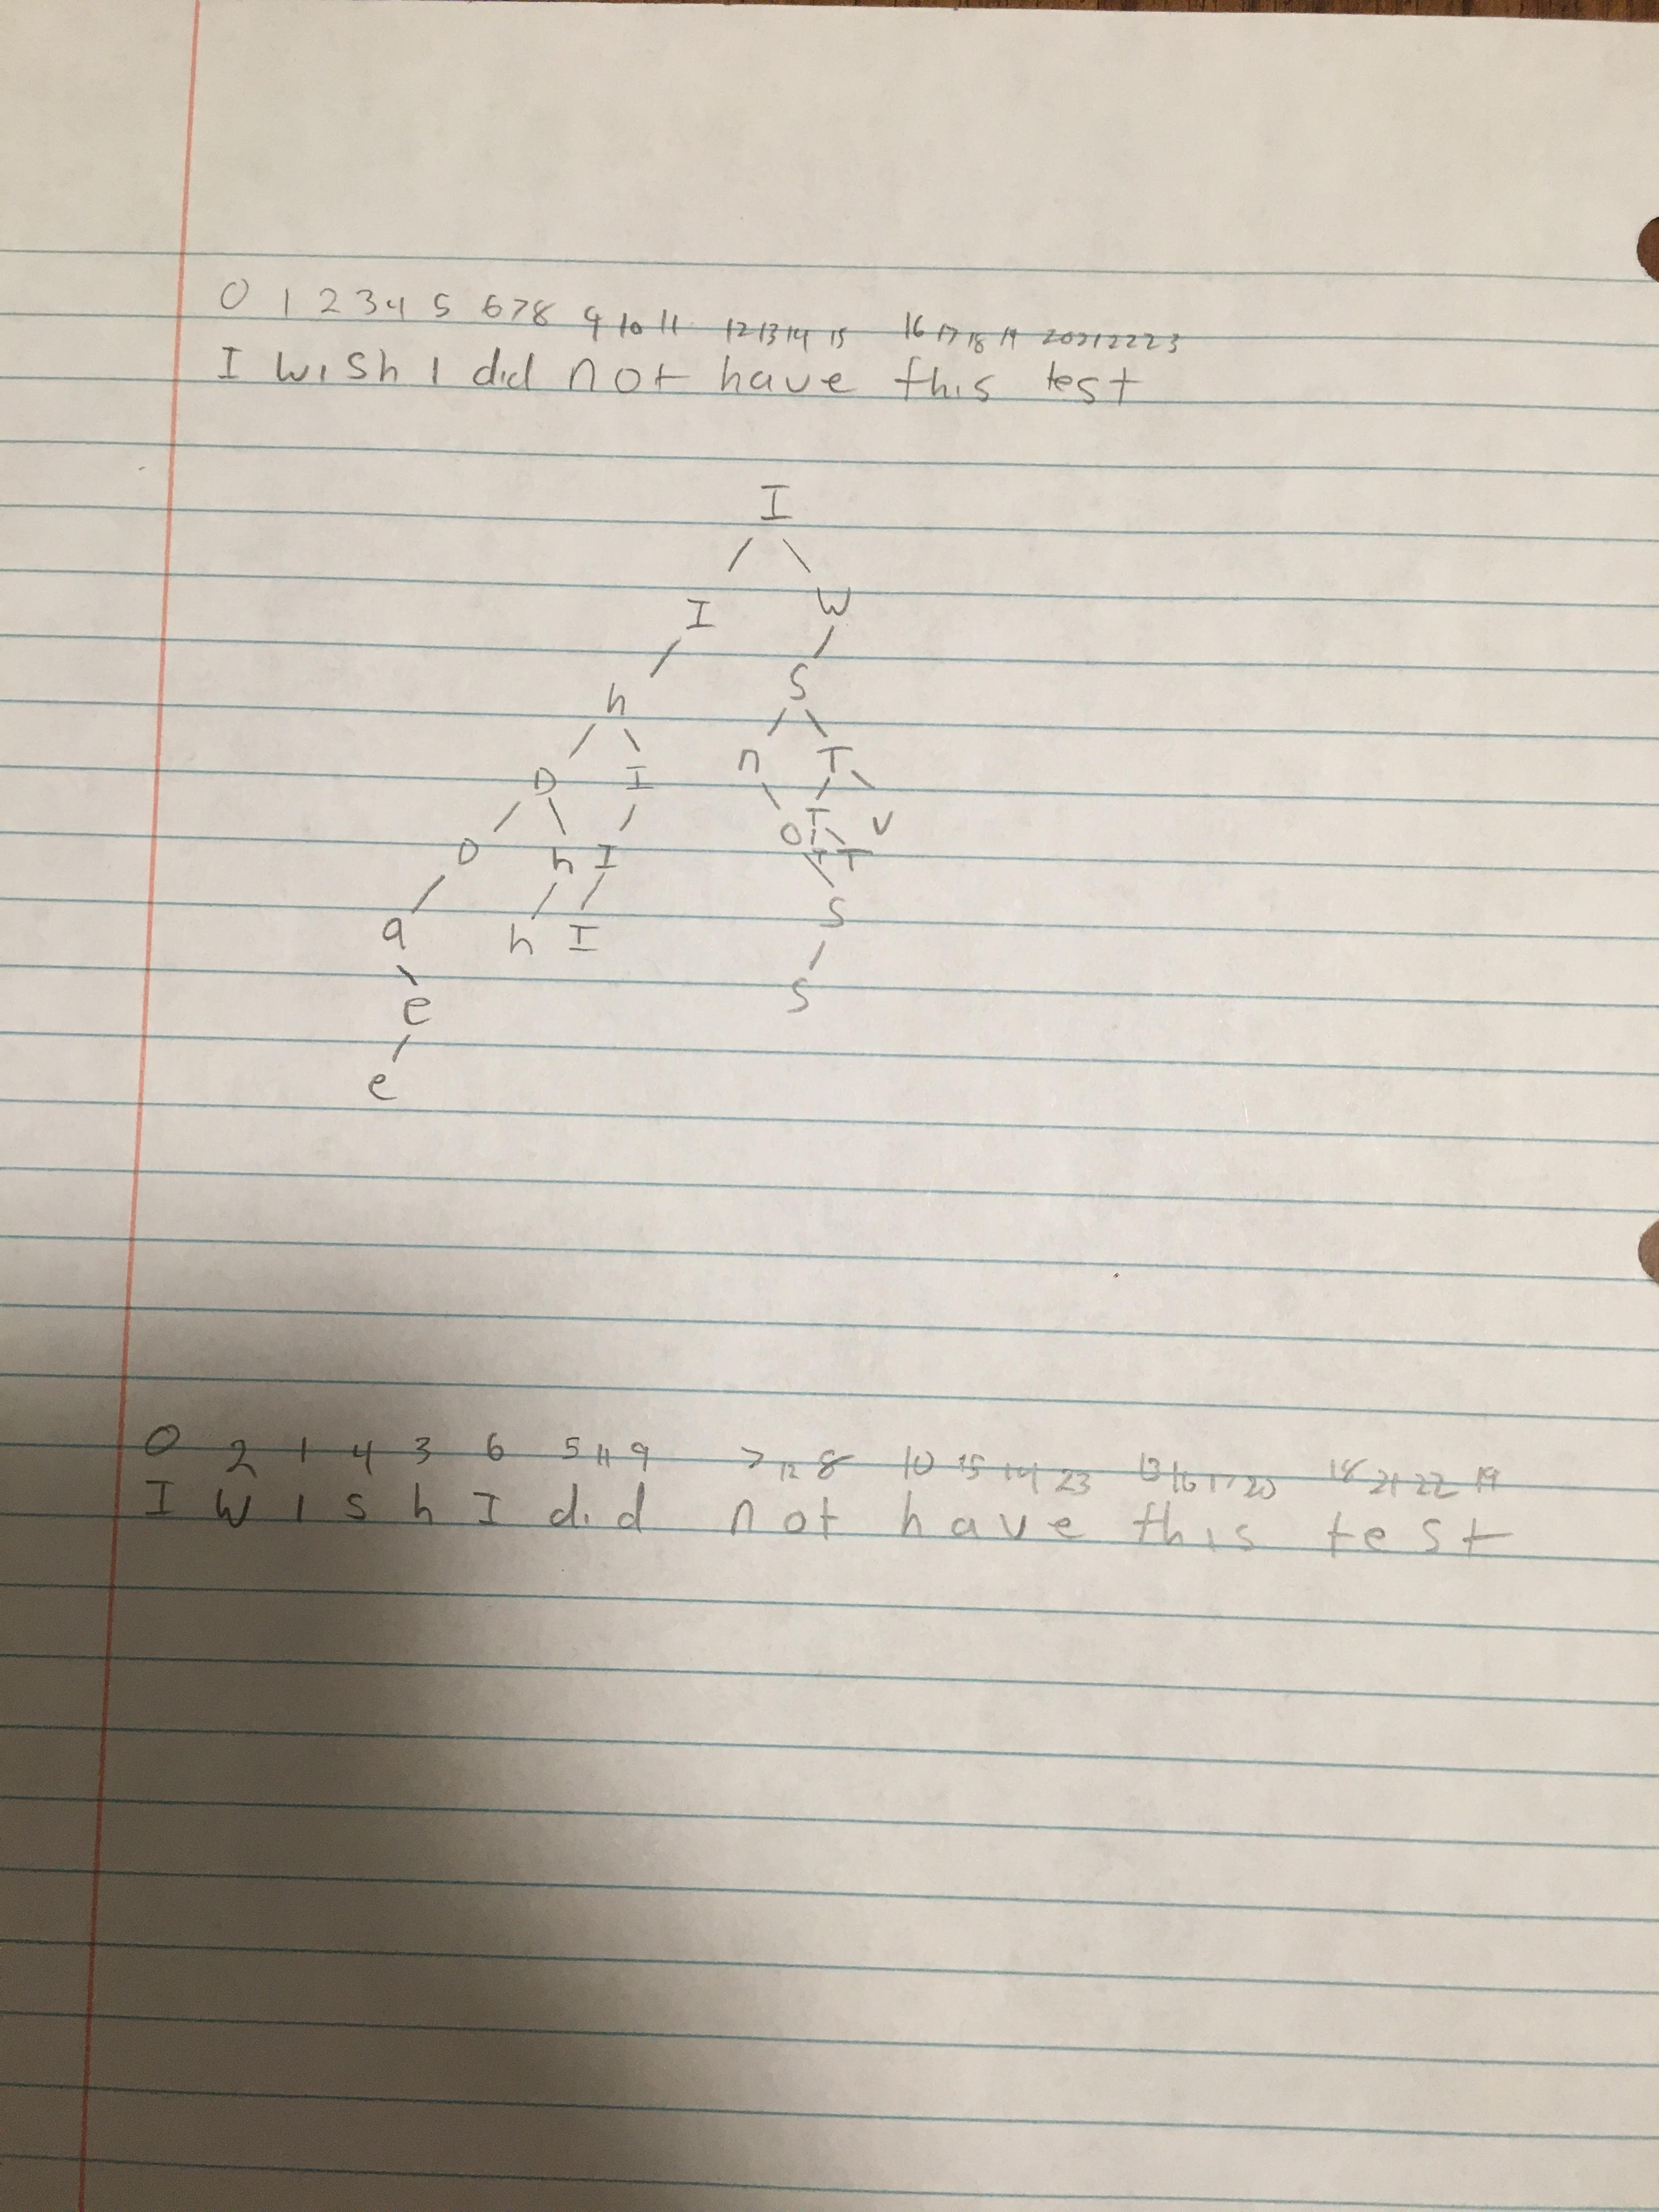 0 1 2 3 4 5 6 7 8 9 10 11 12 13 14 15 16 17 18 19 20 21 22 23
I wish I did not have this test
I
I W
h S
D I n T
D h I O T V
T T
a h I S
e S
e
0 2 1 4 3 6 5 11 9 7 12 8 10 15 14 23 13 16 17 20 18 21 22 19
I w i s h I did not have this test